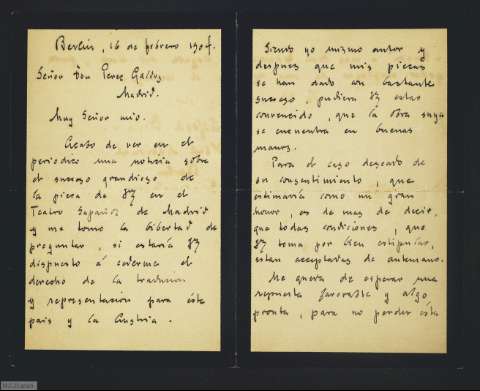 Berlin, 16 de febrero 1904.
Señor Don Perez Galdós
Madrid.
Muy Señor mio.
Acabo de ver en el
periodico una noticia sobre
el suceso grandioso de
la pieza de Vd en el
Teatro Español de Madrid
y me tomo la libertad de
preguntar, si estaría Vd
dispuesto á cederme el
derecho de la traduccion
y representacion para éste
pais y la Austria.
Siendo yo mismo autor y
despues que mis piezas
se han dado con bastante
suceso, pudiera Vd estar
convencido, que la obra suya
se encuentra en buenas
manos.
Para el caso deseado de
su consentimiento, que
estimaría como un gran
honor, es de mas de decir,
que todas condiciones, que
Vd toma por bien estipular,
estan acceptadas de antemano.
Me queda de esperar una
repuesta favorable y algo
pronta, para no perder ésta